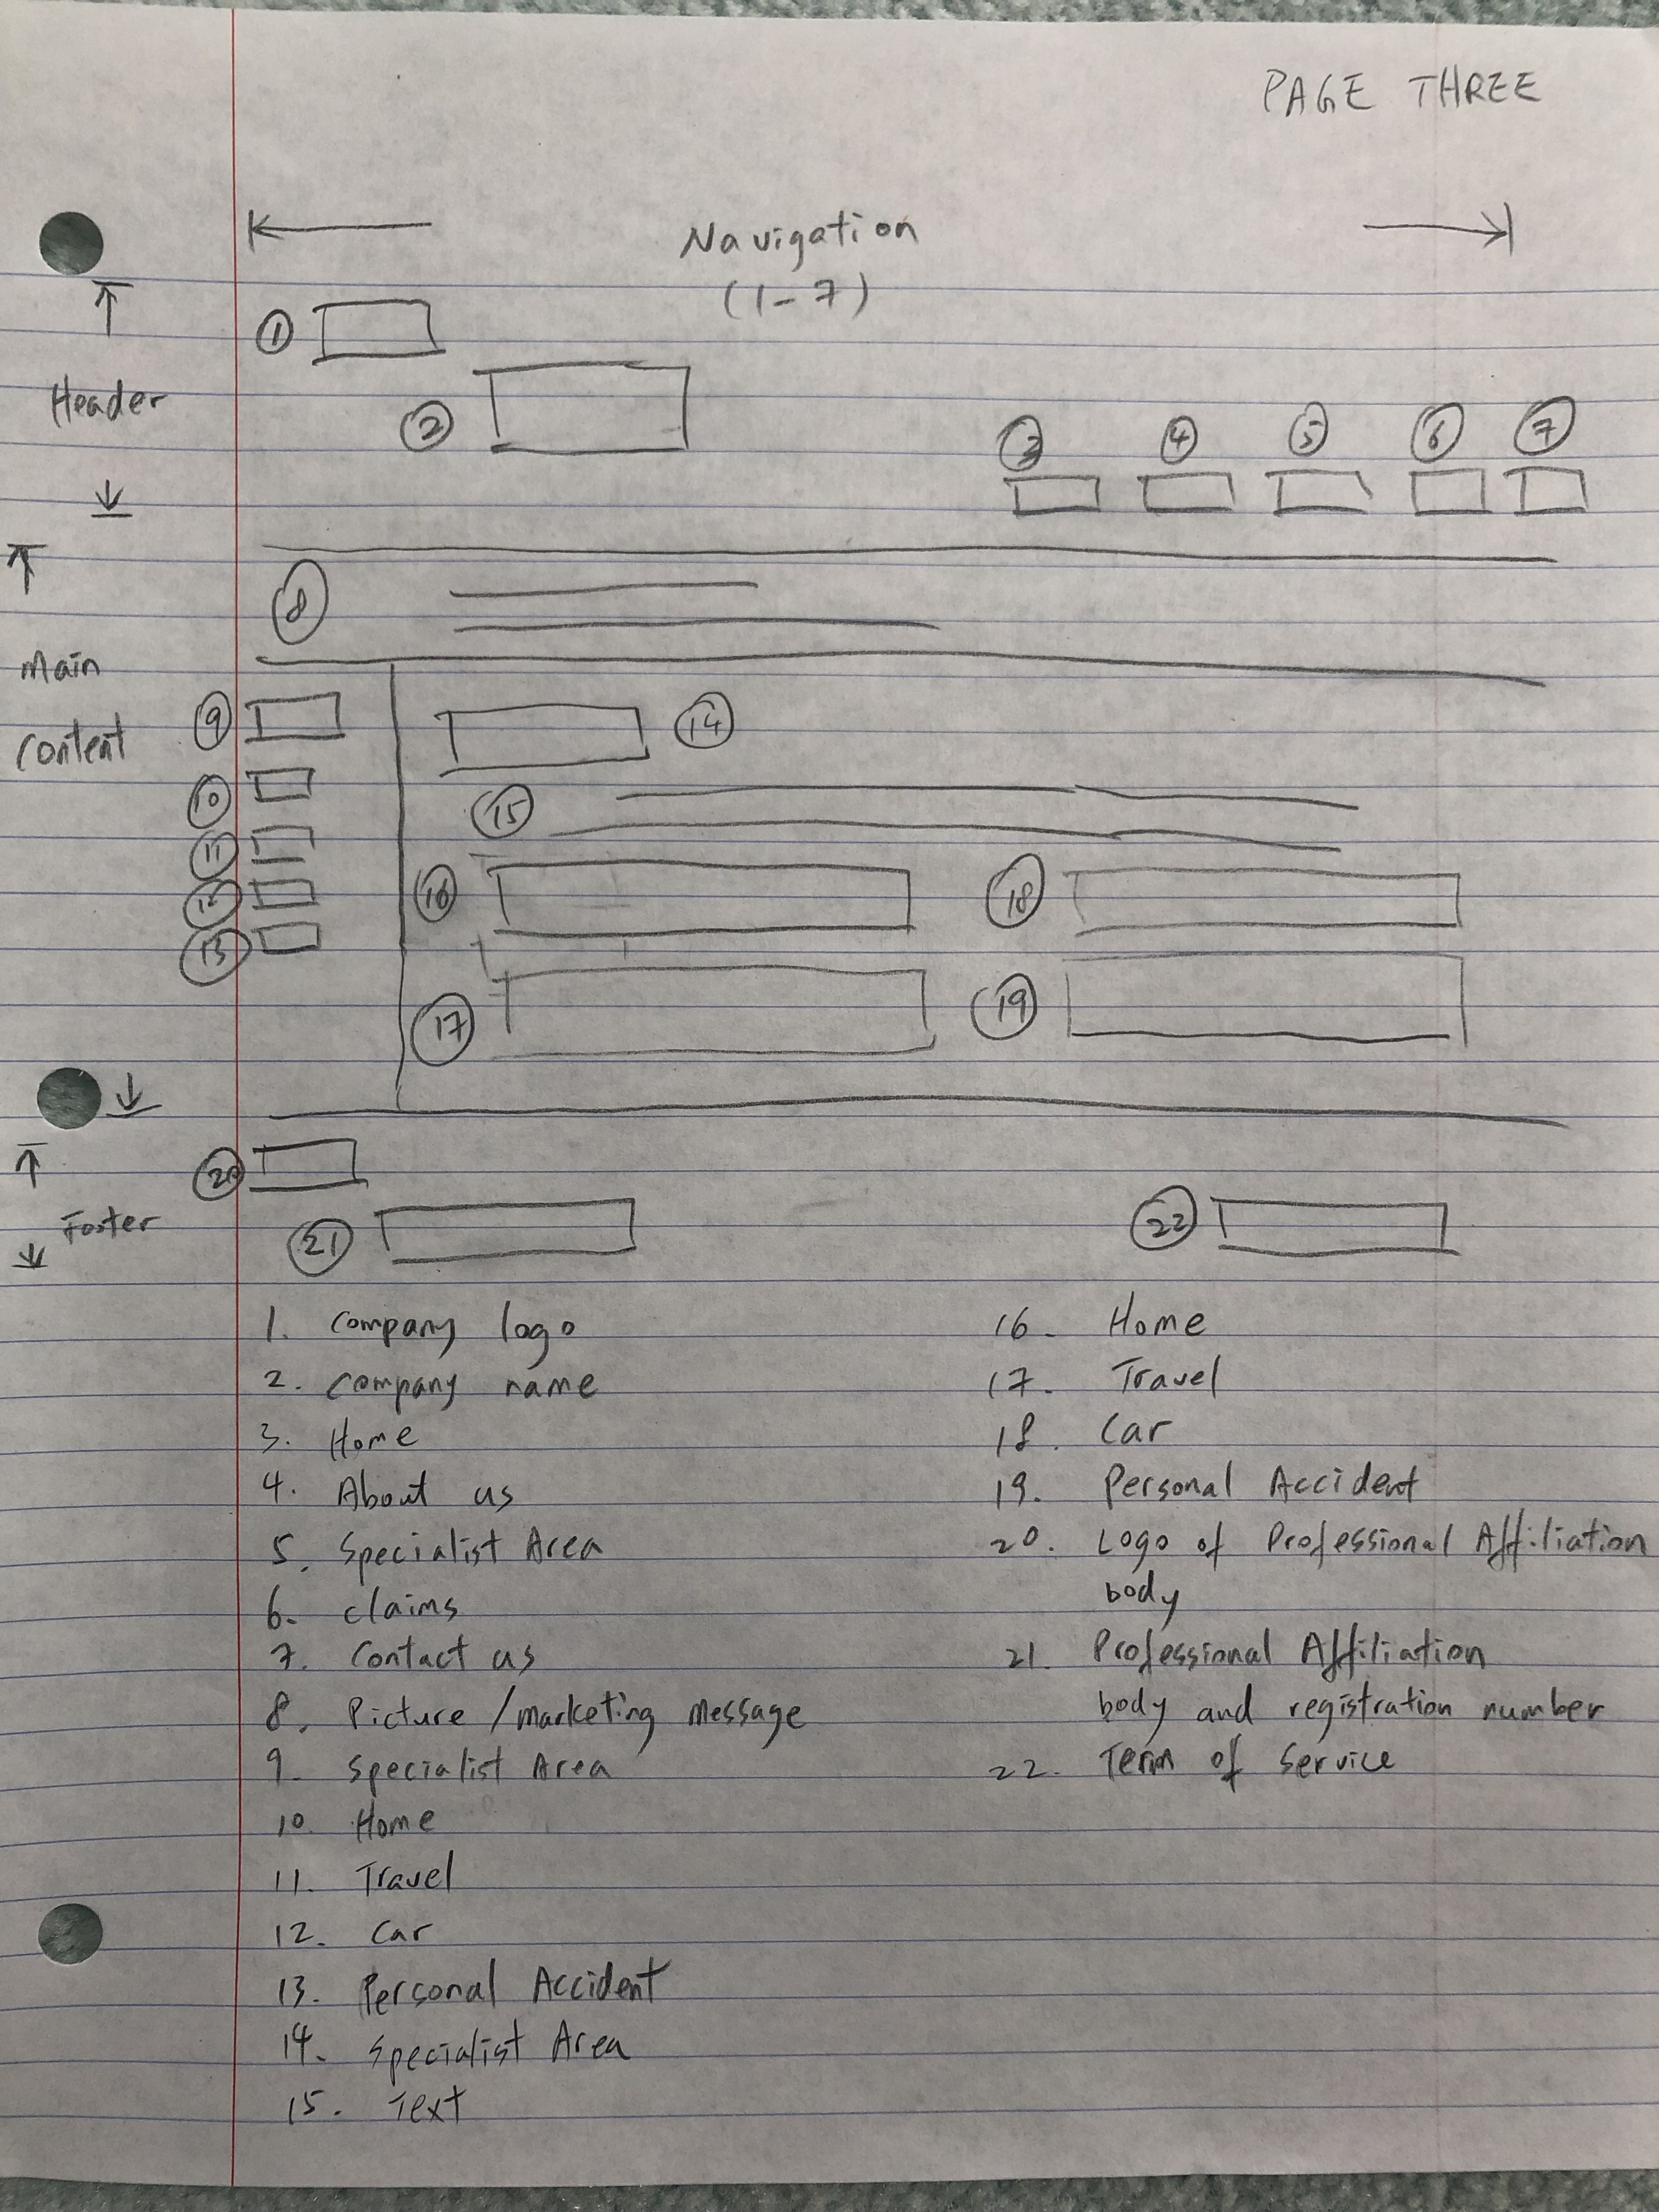 PAGE THREE
Navigation
(1-7)
Header
1
2
3
4
5
6
7
8
Main
Content
9
10
11
12
13
14
15
16
18
17
19
Footer
20
21
22
1. Company logo
2. Company name
3. Home
4. About us
5. Specialist Area
6. claims
7. Contact us
8. Picture / marketing message
9. Specialist Area
10. Home
11. Travel
12. Car
13. Personal Accident
14. Specialist Area
15. Text
16. Home
17. Travel
18. Car
19. Personal Accident
20. Logo of Professional Affiliation
body
21. Professional Affiliation
body and registration number
22. Term of Service